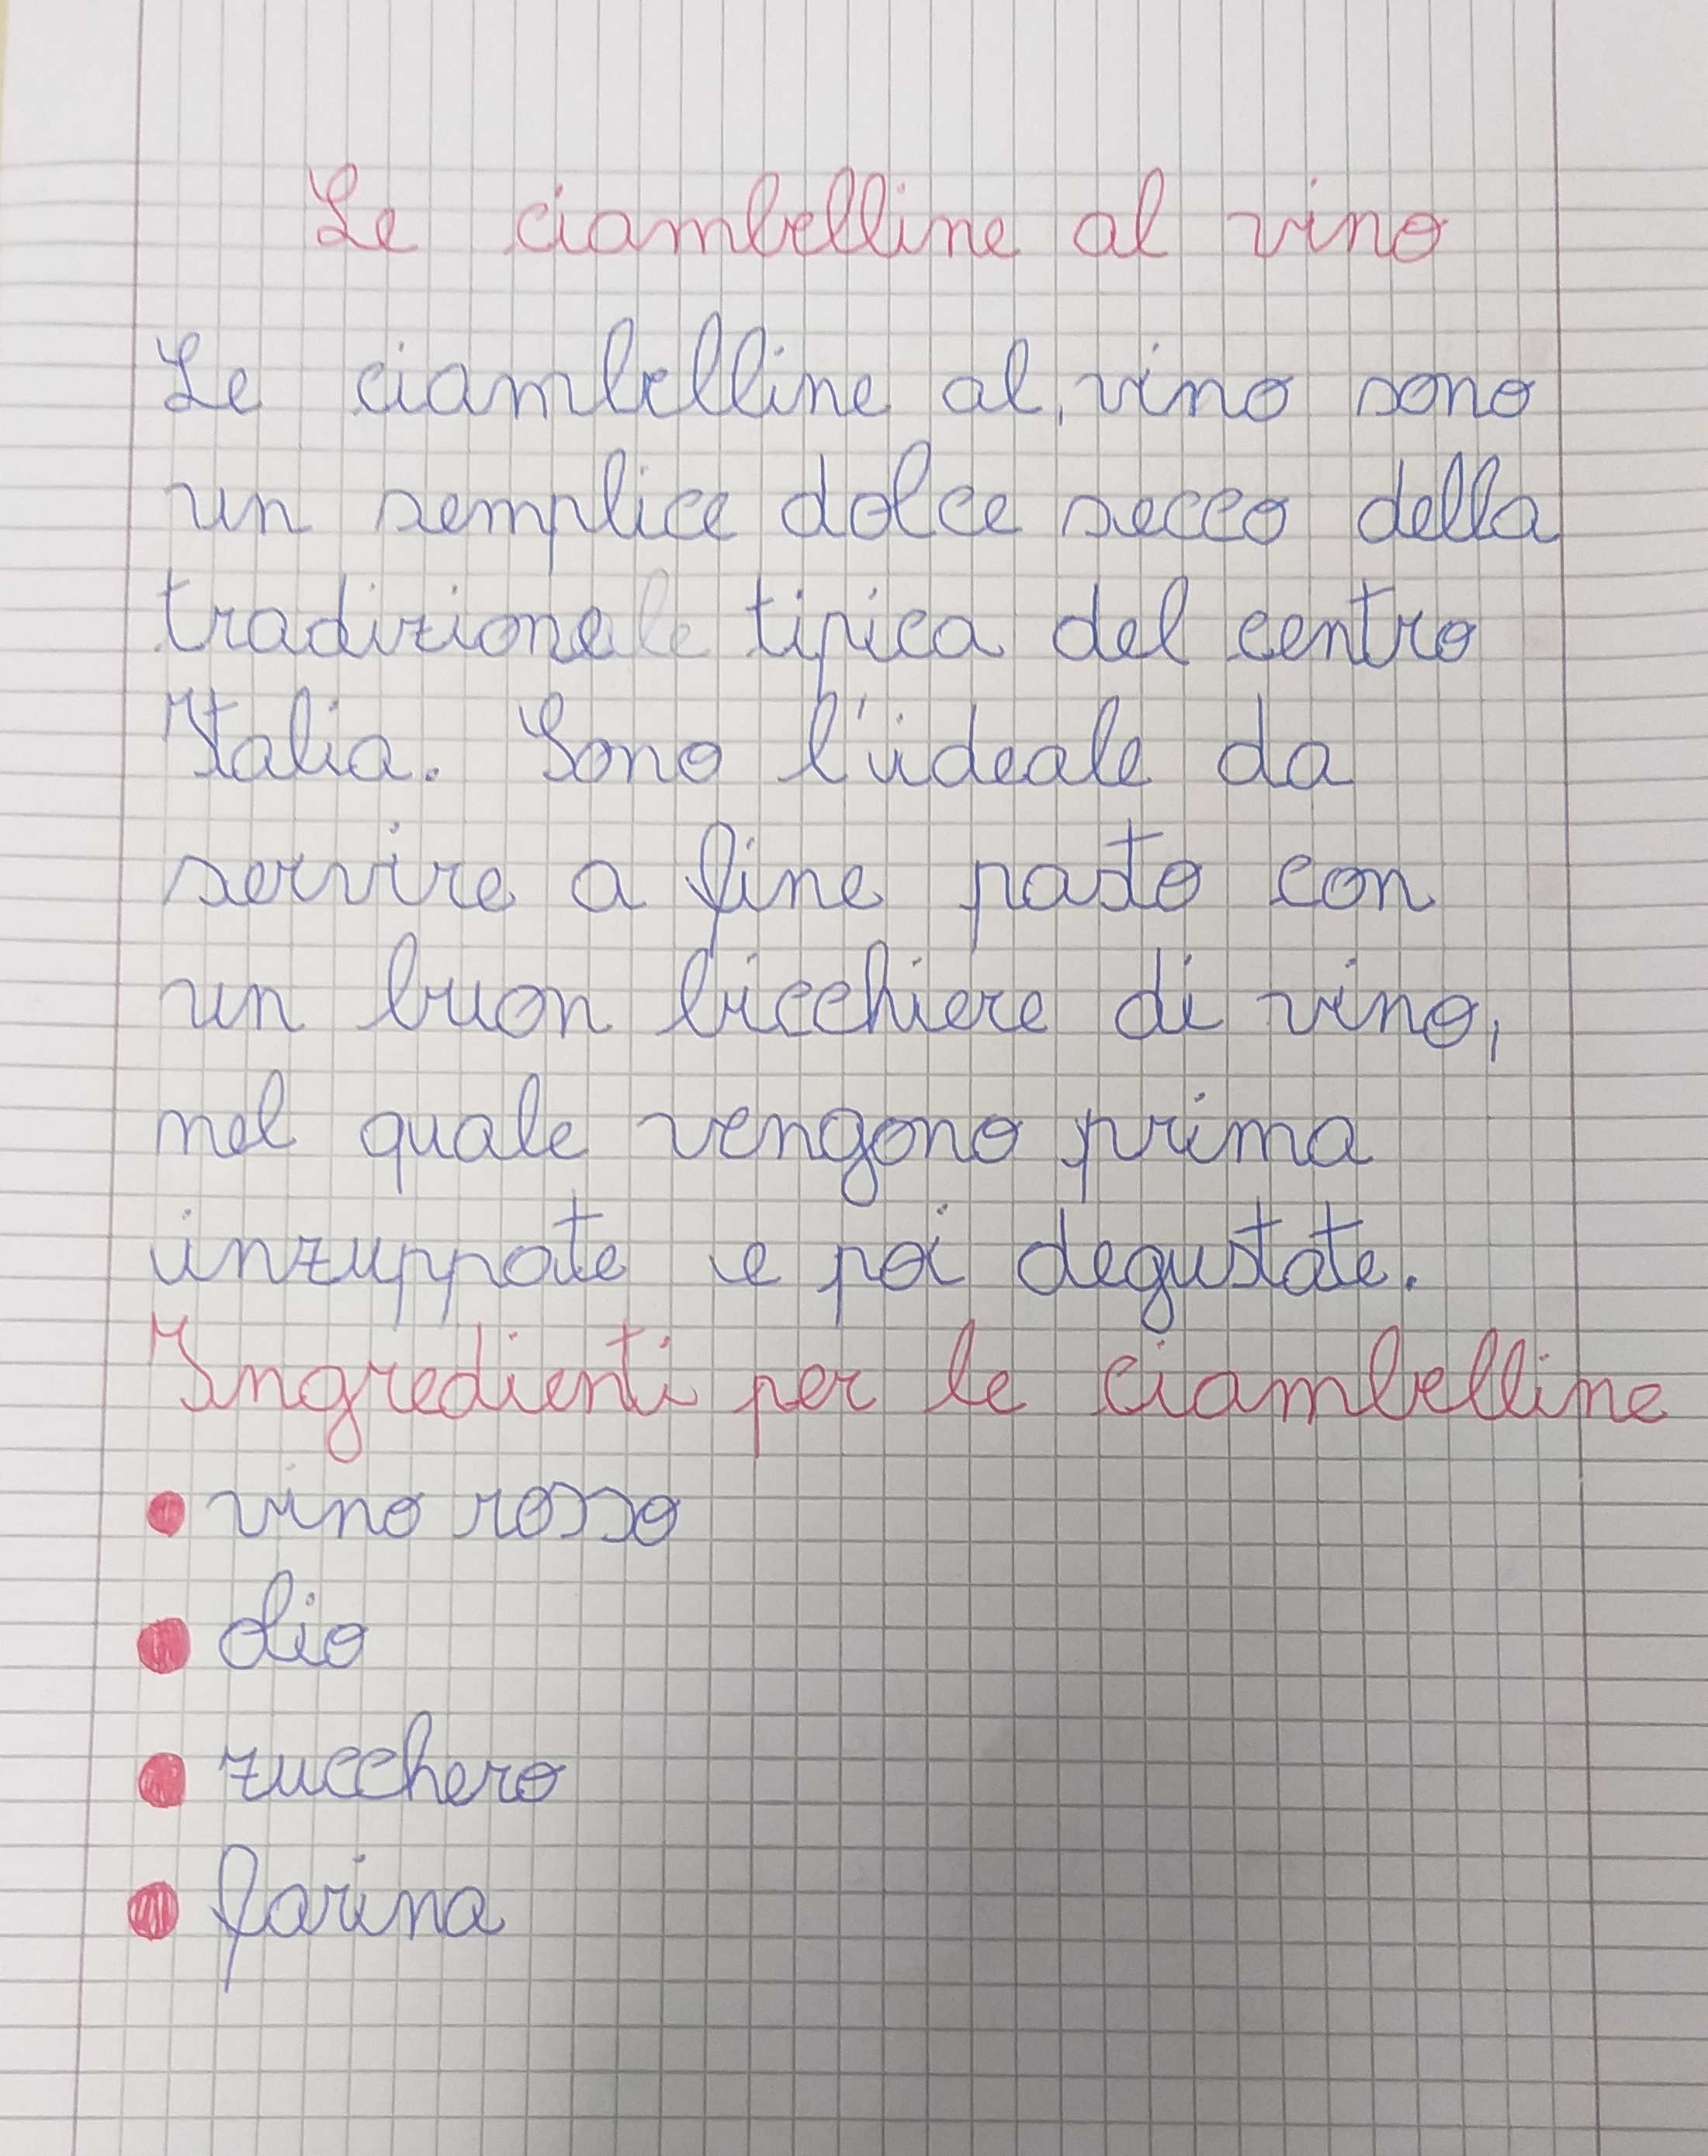 Le ciambelline al vino
Le ciambelline al vino sono
un semplice dolce secco della
tradizione tipica del centro
Italia. Sono l'ideale da
servire a fine pasto con
un buon bicchiere di vino,
nel quale vengono prima
inzuppate e poi degustate.
Ingredienti per le ciambelline
• vino rosso
• olio
• zucchero
• farina